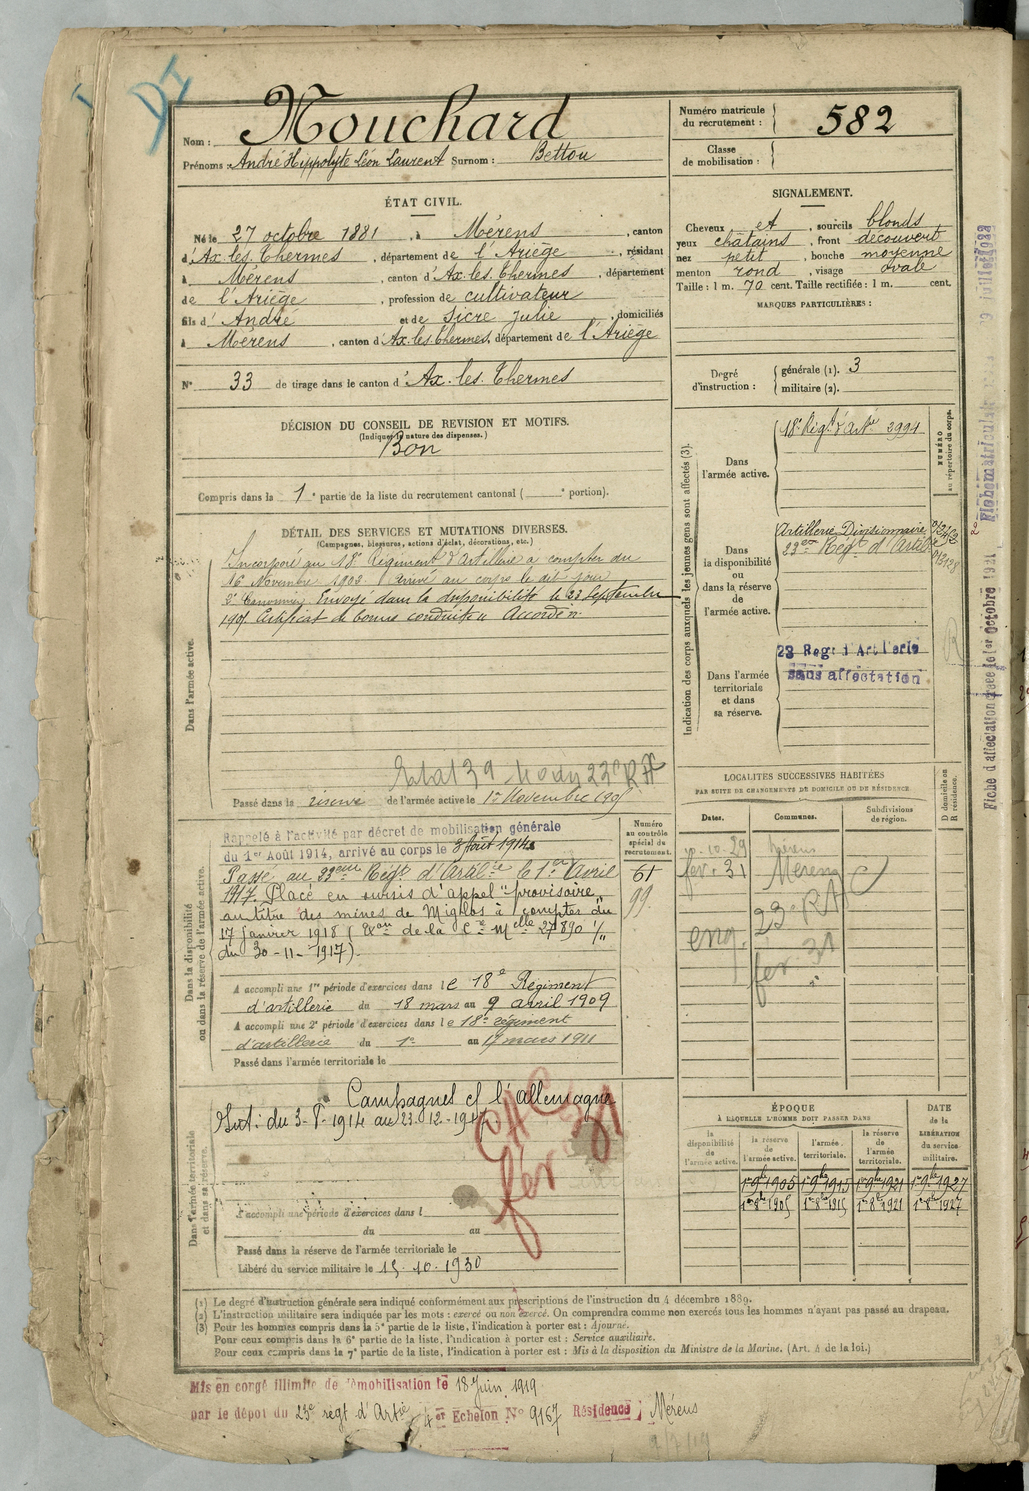 Nom : Mouchard
Prénoms : André Hippolyte Léon Laurent Surnom : Bettou
Numéro matricule du recrutement : 582
Classe de mobilisation :
ÉTAT CIVIL.
Né le 27 octobre 1881, à Mérens, canton
d'Ax-les-Thermes, département de l'Ariège, résidant
à Mérens, canton d'Ax-les-Thermes, département
de l'Ariège, profession de cultivateur
fils d'André et de Sicre Julie, domiciliés
à Mérens, canton d'Ax-les-Thermes, département de l'Ariège
N° 33 de tirage dans le canton d'Ax-les-Thermes
SIGNALEMENT.
Cheveux et, sourcils blonds
yeux châtains, front découvert
nez petit, bouche moyenne
menton rond, visage ovale
Taille : 1 m. 70 cent. Taille rectifiée : 1 m. cent.
MARQUES PARTICULIÈRES :
Degré d'instruction : générale (1). 3
militaire (2).
DÉCISION DU CONSEIL DE REVISION ET MOTIFS.
(Indiquer la nature des dispenses.)
Bon
Compris dans la 1e partie de la liste du recrutement cantonal ( e portion).
DÉTAIL DES SERVICES ET MUTATIONS DIVERSES.
(Campagnes, blessures, actions d'éclat, décorations, etc.)
Dans l'armée active.
Incorporé au 18e Régiment d'Artillerie à compter du
16 Novembre 1902. Arrivé au corps le dit jour
2e Canonnier. Envoyé dans la disponibilité le 23 Septembre
190 Certificat de bonne conduite Accordé
Etat 39 23e RAC
Passé dans la réserve de l'armée active le 1er Novembre 190
Indication des corps auxquels les jeunes gens sont affectés (3).
NUMÉRO au répertoire du corps.
Dans l'armée active.
18e Régt d'Artie 2994
Dans la disponibilité ou dans la réserve de l'armée active.
Artillerie Divisionnaire
23ème Régt d'Artil
Dans l'armée territoriale et dans sa réserve.
23 Regt d'Artillerie
sans affectation
Fiche d'affectation créée le 1er Octobre 1921
Fiche matriculaire
Dans la disponibilité ou dans la réserve de l'armée active.
Numéro au contrôle spécial de recrutement.
61
99
Rappelé à l'activité par décret de mobilisation générale
du 1er Août 1914, arrivé au corps le 3 Août 1914
Passé au 23ème Régt d'Artilie le 1er Avril
1917. Placé en sursis d'appel "provisoire"
au titre des mines de Miglos à compter du
17 janvier 1918 (Exon de la Cre Melle 27890 1/11
du 30-11-1917).
A accompli une 1re période d'exercices dans le 18e Régiment
d'artillerie du 18 mars au 9 avril 1909
A accompli une 2e période d'exercices dans le 18e régiment
d'artillerie du 1er au 17 mars 1911
Passé dans l'armée territoriale le
LOCALITÉS SUCCESSIVES HABITÉES
PAR SUITE DE CHANGEMENTS DE DOMICILE OU DE RÉSIDENCE
Dates. Communes. Subdivisions de région. D domicile ou R résidence.
10.29 Mérens
fev. 31 Mérens
23e RA
fev 31
Dans l'armée territoriale et dans sa réserve.
Campagnes cf l'allemagne
Int: du 3-8-1914 au 23-12-1917
CAC
fév 31
A accompli une période d'exercices dans l
du au
Passé dans la réserve de l'armée territoriale le
Libéré du service militaire le 15-10-1930
ÉPOQUE
À LAQUELLE L'HOMME DOIT PASSER DANS
DATE de la LIBÉRATION du service militaire.
la disponibilité de l'armée active. la réserve de l'armée active. l'armée territoriale. la réserve de l'armée territoriale.
1er 9bre 1905 1er 9bre 1915 1er 9bre 1921 1er 9bre 1927
1er 8bre 1905 1er 8bre 1915 1er 8bre 1921 1er 8bre 1927
(1) Le degré d'instruction générale sera indiqué conformément aux prescriptions de l'instruction du 4 décembre 1889.
(2) L'instruction militaire sera indiquée par les mots : exercé ou non exercé. On comprendra comme non exercés tous les hommes n'ayant pas passé au drapeau.
(3) Pour les hommes compris dans la 5e partie de la liste, l'indication à porter est : Ajourné.
Pour ceux compris dans la 6e partie de la liste, l'indication à porter est : Service auxiliaire.
Pour ceux compris dans la 7e partie de la liste, l'indication à porter est : Mis à la disposition du Ministre de la Marine. (Art. 4 de la loi.)
Mis en congé illimité de démobilisation le 18 Juin 1919
par le dépôt du 23e regt d'Artie 4er Echelon N° 9167 Résidence ; Mérens